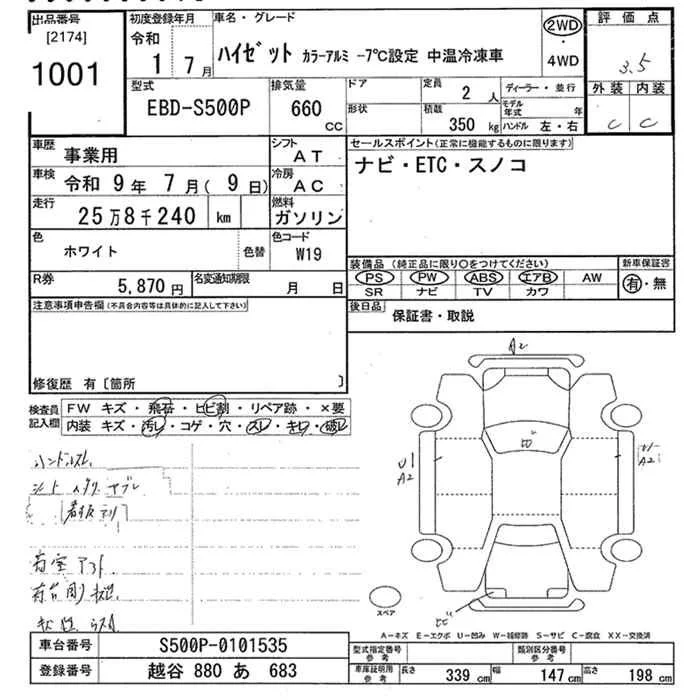 出品番号 初度登録年月 車名・グレード 評価点
[2174] 令和 2WD
1001 1 7月 ハイゼット カラーアルミ -7℃設定 中温冷凍車 ・ 3.5
4WD
型式 排気量 ドア 定員 2 人 ディーラー・並行 外装 内装
EBD-S500P 660 CC 形状 積載 350 kg モデル年式 年 C C
ハンドル 左・右
車歴 事業用 シフト AT セールスポイント(正常に機能するものに限ります)
車検 令和 9年 7月( 9日) 冷房 AC ナビ・ETC・スノコ
走行 25万8千240 km 燃料 ガソリン
色 ホワイト 色替 色コード W19
装備品(純正品に限り○をつけてください) 新車保証書
R券 5,870円 名変通知期限 月 日 PS PW ABS エアB AW 有・無
SR ナビ TV カワ
注意事項申告欄(不具合内容等は具体的に記入して下さい) 後日品 保証書・取説
修復歴 有〔箇所 〕
検査員記入欄 FW キズ・飛石・ヒビ割・リペア跡・×要
内装 キズ・汚レ・コゲ・穴・スレ・キレ・破レ
A2
U1
A2
A2
スペア
A-キズ E-エクボ U-凹み W-補修跡 S-サビ C-腐食 XX-交換済
車台番号 S500P-0101535 型式指定番号 参考 類別区分番号 参考
登録番号 越谷 880 あ 683 車庫証明用 参考 長さ 339 cm 幅 147 cm 高さ 198 cm